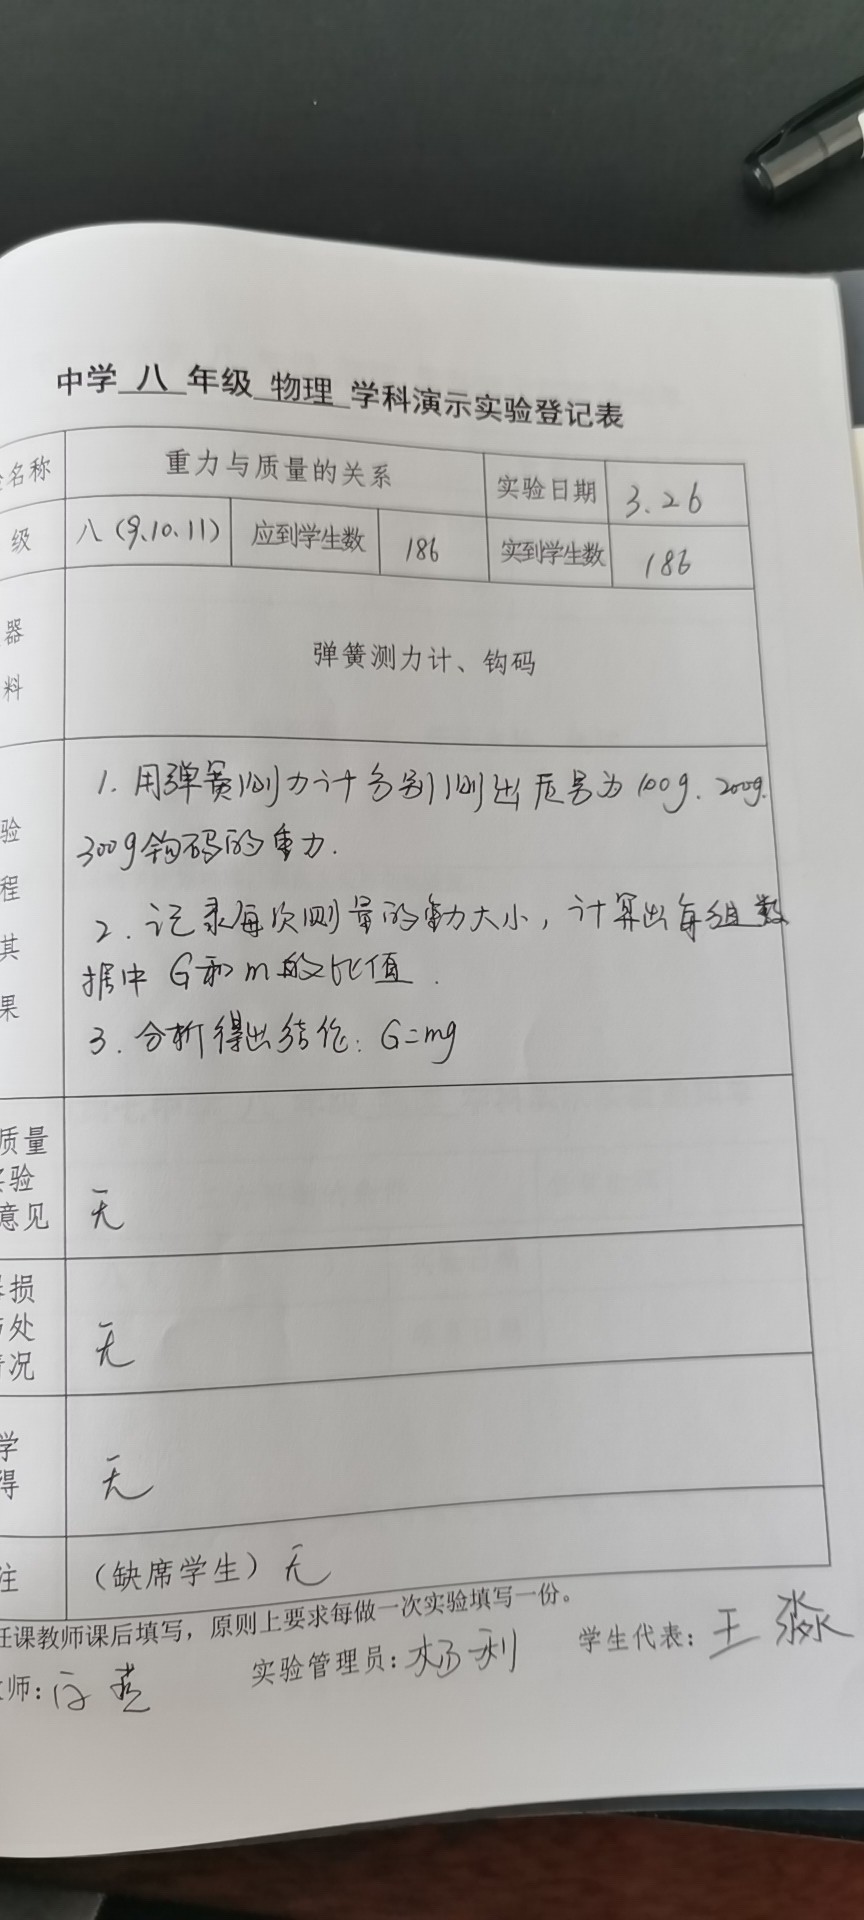 中学 八 年级 物理 学科演示实验登记表
名称 重力与质量的关系 实验日期 3.26
级 八（9、10、11） 应到学生数 186 实到学生数 186
器
料
弹簧测力计、钩码
1. 用弹簧测力计分别测出质量为100g、200g、
300g钩码的重力.
2. 记录每次测量的重力大小，计算出每组数
据中G和m的比值.
3. 分析得出结论：G=mg
验
程
其
果
质量
实验
意见
无
损
处
情况
无
学
得
无
注 （缺席学生）无
任课教师课后填写，原则上要求每做一次实验填写一份。
师： 实验管理员：杨利 学生代表：王淼